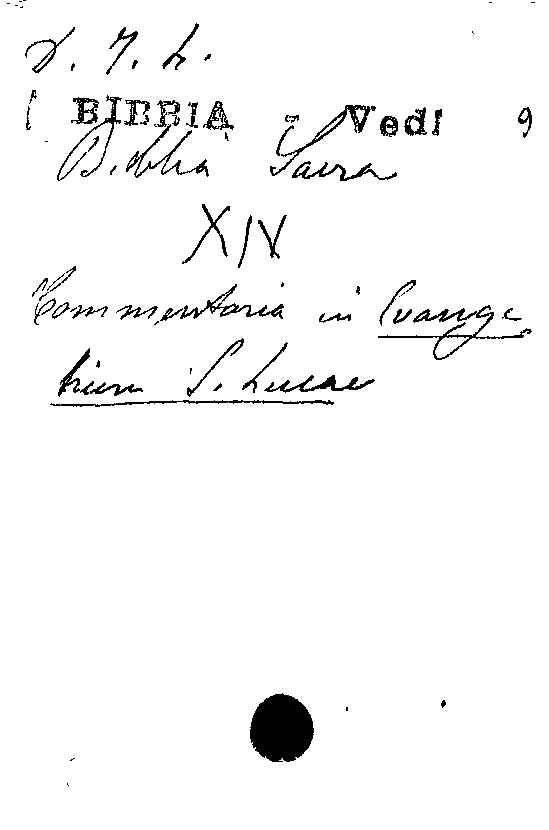 BIBBIA - Vedi 9
Biblia Sacra
XIV
Commentaria in Evange
lium S. Lucae